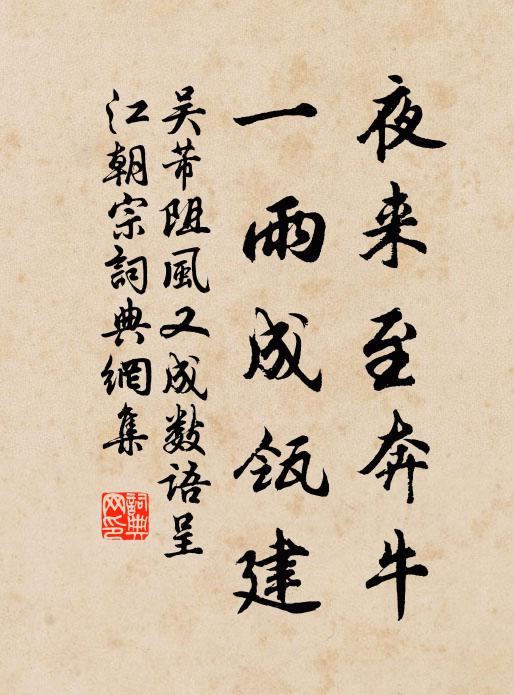 夜来至奔牛
一雨成瓴建
吴芾阻風又成数语呈
江朝宗詞典網集
詞典
网印